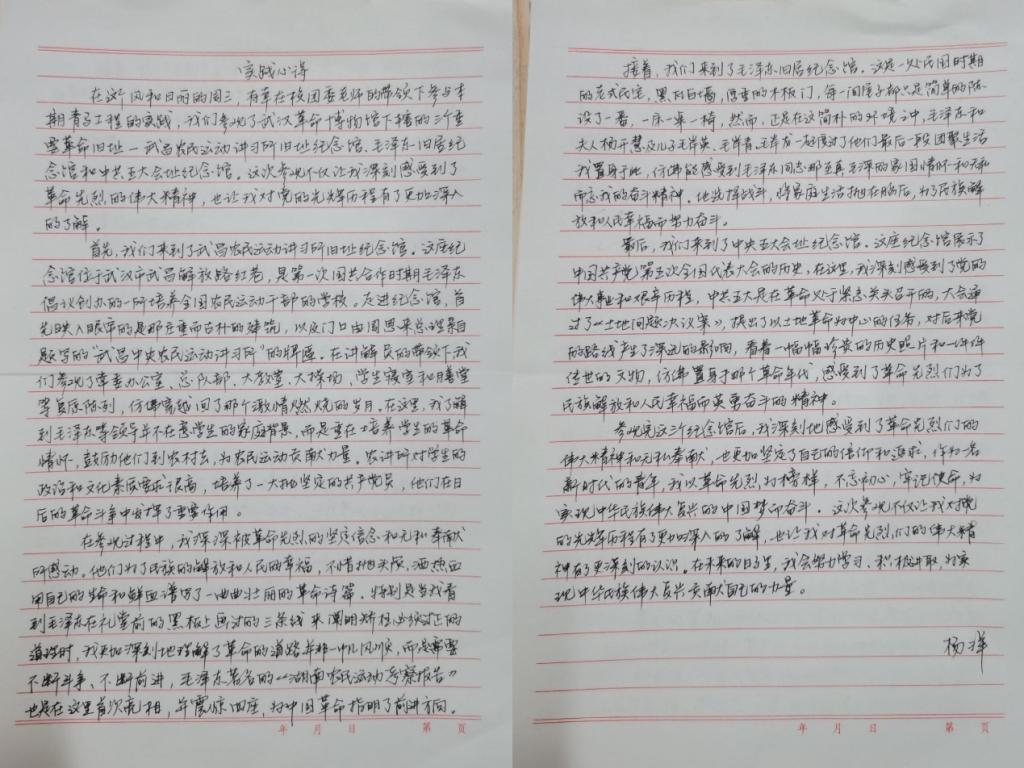 实践心得
在这个风和日丽的周三，有幸在校团委老师的带领下参与本
期青马工程的实践，我们参观了武汉革命博物馆下辖的三个重
要革命旧址—武昌农民运动讲习所旧址纪念馆、毛泽东旧居纪
念馆和中共五大会址纪念馆。这次参观不仅让我深刻感受到了
革命先烈的伟大精神，也让我对党的光辉历程有了更加深入
的了解。
首先，我们来到了武昌农民运动讲习所旧址纪念馆。这座纪
念馆位于武汉市武昌解放路红巷，是第一次国共合作时期毛泽东
倡议创办的一所培养全国农民运动干部的学校。走进纪念馆，首
先映入眼帘的是那庄重而古朴的建筑，以及门口由周恩来总理亲自
题写的“武昌中央农民运动讲习所”的牌匾。在讲解员的带领下我
们参观了常委办公室、总队部、大教堂、大操场，学生寝室和膳堂
等复原陈列，仿佛穿越回了那个激情燃烧的岁月。在这里，我了解
到毛泽东等领导并不在意学生的家庭背景，而是重在培养学生的革命
情怀，鼓励他们到农村去，为农民运动贡献力量。农讲所对学生的
政治和文化素质要求很高，培养了一大批坚定的共产党员，他们在日
后的革命斗争中发挥了重要作用。
在参观过程中，我深深被革命先烈的坚定信念和无私奉献
所感动。他们为了民族的解放和人民的幸福，不惜抛头颅，洒热血
用自己的生命和鲜血谱写了一曲曲壮丽的革命诗篇。特别是当我看
到毛泽东在礼堂前的黑板上画过的三条线来阐明矫枉必须过正的
道理时，我更加深刻地理解了革命的道路并非一帆风顺，而是需要
不断斗争、不断前进，毛泽东著名的《湖南农民运动考察报告》
也是在这里首次亮相，年震惊四座，为中国革命指明了前进方向。
年 月 日 第 页
接着，我们来到了毛泽东旧居纪念馆。这是一处民国时期
的老式民宅，黑瓦白墙，厚重的木板门，每一间屋子都只是简单的陈
设了一番，一床一桌一椅，然而，正是在这简朴的环境之中，毛泽东和
夫人杨开慧及儿子毛岸英、毛岸青、毛岸龙一起度过了他们最后一段团聚生活
我置身于此，仿佛能感受到毛泽东同志那至真至深的家国情怀和无私
而忘我的奋斗精神。他选择战斗，将家庭生活抛在脑后，为了民族解
放和人民幸福而努力奋斗。
最后，我们来到了中共五大会址纪念馆。这座纪念馆展示了
中国共产党第五次全国代表大会的历史，在这里，我深刻感受到了党的
伟大事业和艰辛历程，中共五大是在革命处于紧急关头召开的，大会通
过了《土地问题决议案》，提出了以土地革命为中心的任务，对后来党
的路线产生了深远的影响，看着一幅幅珍贵的历史照片和一件件
传世的文物，仿佛置身于那个革命年代，感受到了革命先烈们为了
民族解放和人民幸福而英勇奋斗的精神。
参观完这三个纪念馆后，我深刻地感受到了革命先烈们的
伟大精神和无私奉献，也更加坚定了自己的信仰和追求，作为一名
新时代的青年，我以革命先烈为榜样，不忘初心，牢记使命，为
实现中华民族伟大复兴的中国梦而奋斗。这次参观不仅让我对党
的光辉历程有了更加深入的了解，也让我对革命先烈们的伟大精
神有了更深刻的认识，在未来的日子里，我会努力学习、积极进取，为实
现中华民族伟大复兴贡献自己的力量。
杨洋
年 月 日 第 页